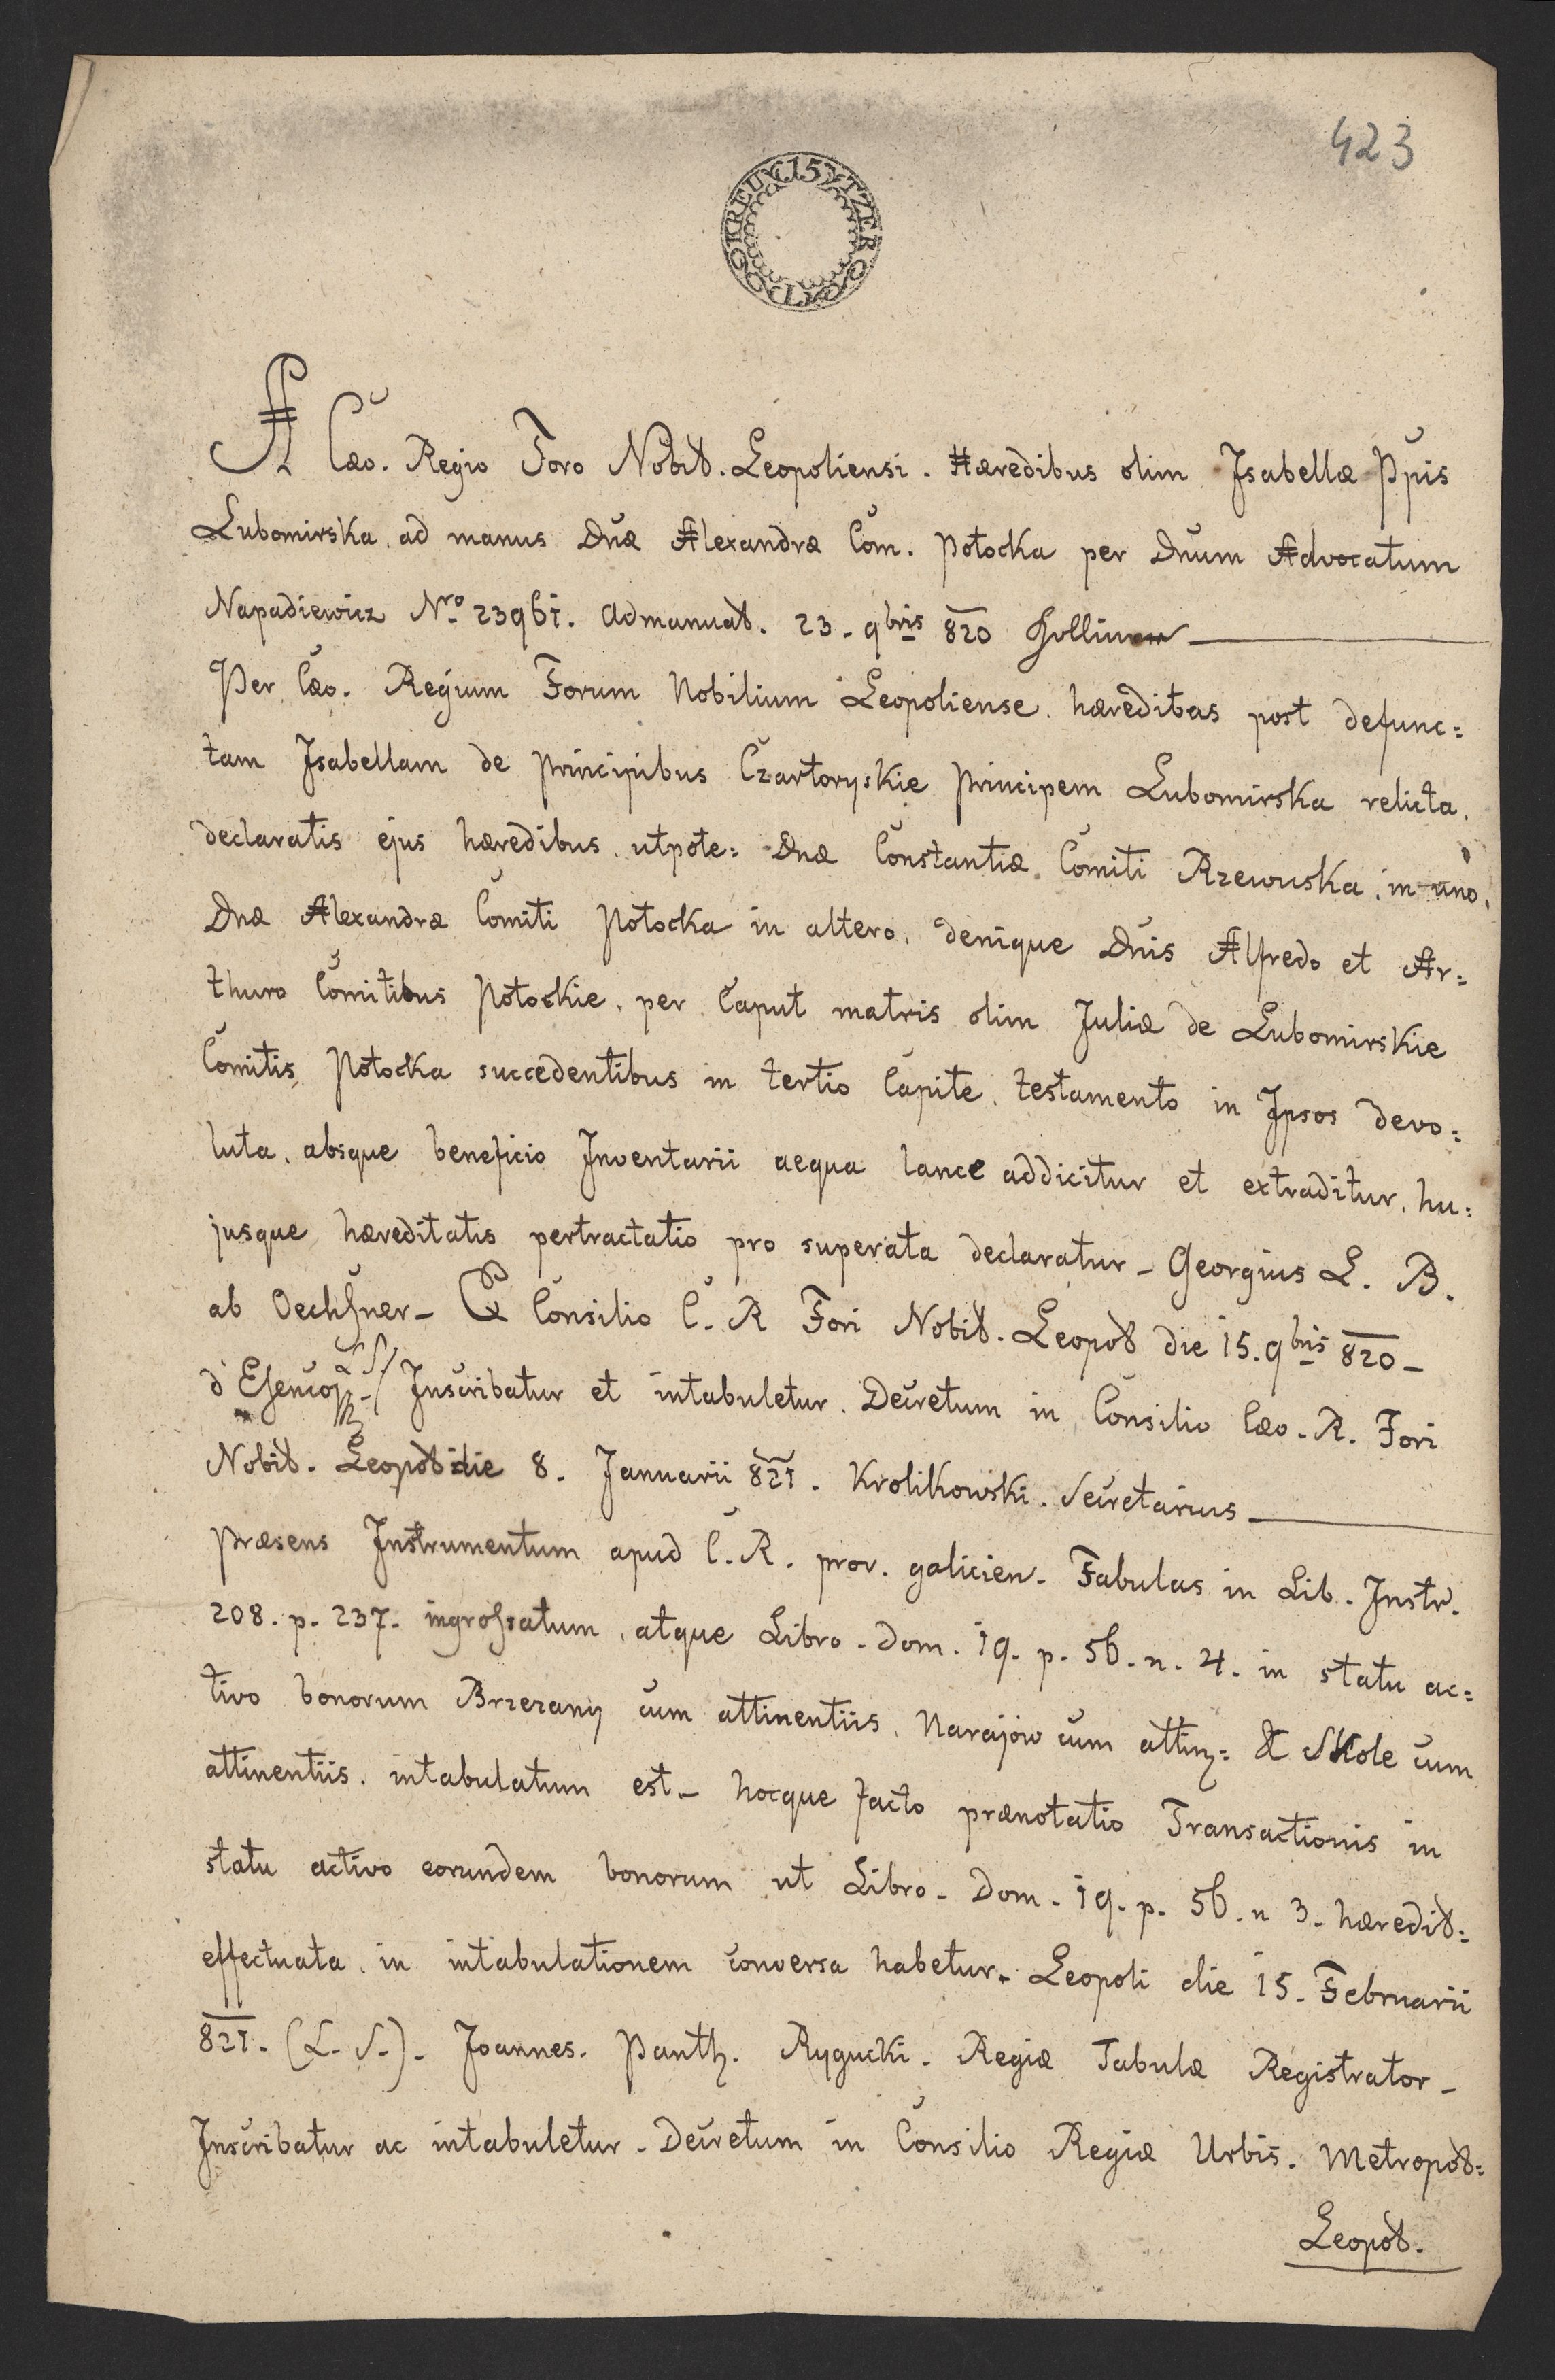 423
15 KREUTZER
A Cæo. Regio Foro Nobil. Leopoliensi. Hæredibus olim Isabellæ Ppis
Lubomirska, ad manus Dnæ Alexandræ Com. Potocka per Dnum Advocatum
Napadiewicz Nro 23961. admanuat. 23. 9bris 820
Per Cæo. Regium Forum Nobilium Leopoliense, hæreditas post defunc=
tam Isabellam de Principibus Czartoryskie Principem Lubomirska relicta,
declaratis ejus hæredibus, utpote: Dnæ Constantiæ Comiti Rzewuska, in uno,
Dnæ Alexandræ Comiti Potocka in altero, denique Dnis Alfredo et Ar=
thuro Comitibus Potockie, per Caput matris olim Juliæ de Lubomirskie
Comitis Potocka succedentibus in tertio Capite, testamento in Ipsos devo=
luta, absque beneficio Inventarii aequa lance addicitur et extraditur, hu=
jusque hæreditatis pertractatio pro superata declaratur – Georgius L. B.
ab Oechsner – Ex Consilio C. R Fori Nobil. Leopol die 15. 9bris 820 –
L S/ Inscribatur et intabuletur. Decretum in Consilio Cæo. R. Fori
Nobil. Leopol die 8. Januarii 821. Krolikowski. Secretarius
Præsens Instrumentum apud C. R. prov. galicien. Tabulas in Lib. Instr.
208. p. 237. ingrossatum, atque Libro. Dom. 19. p. 56. n. 4. in statu ac=
tivo bonorum Brzezany cum attinentiis, Narajow cum attin: & Skole cum
attinentiis. intabulatum est. – hocque facto prænotatio Transactionis in
statu activo eorundem bonorum ut Libro. Dom. 19. p. 56. n 3. hæredit:
effectuata, in intabulationem conversa habetur. Leopoli die 15. Februarii
821. (L. S.). Joannes. Panth. Rygucki. Regiæ Tabulæ Registrator –
Inscribatur ac intabuletur. Decretum in Consilio Regiæ Urbis. Metropol:
Leopol.